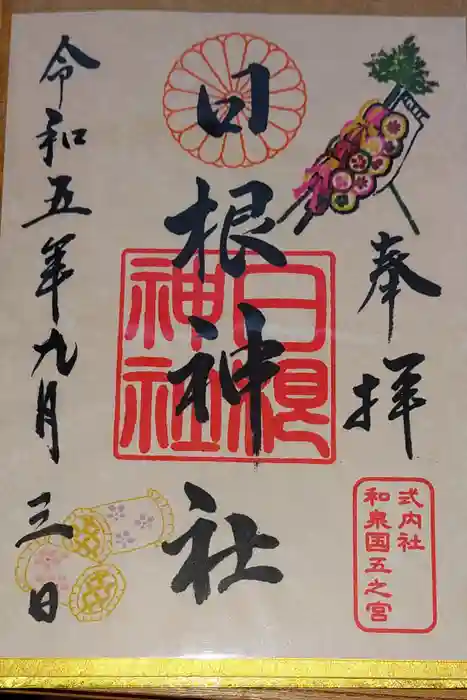 奉拝
式内社
和泉国五之宮
日根神社
日根
神社
令和五年九月三日